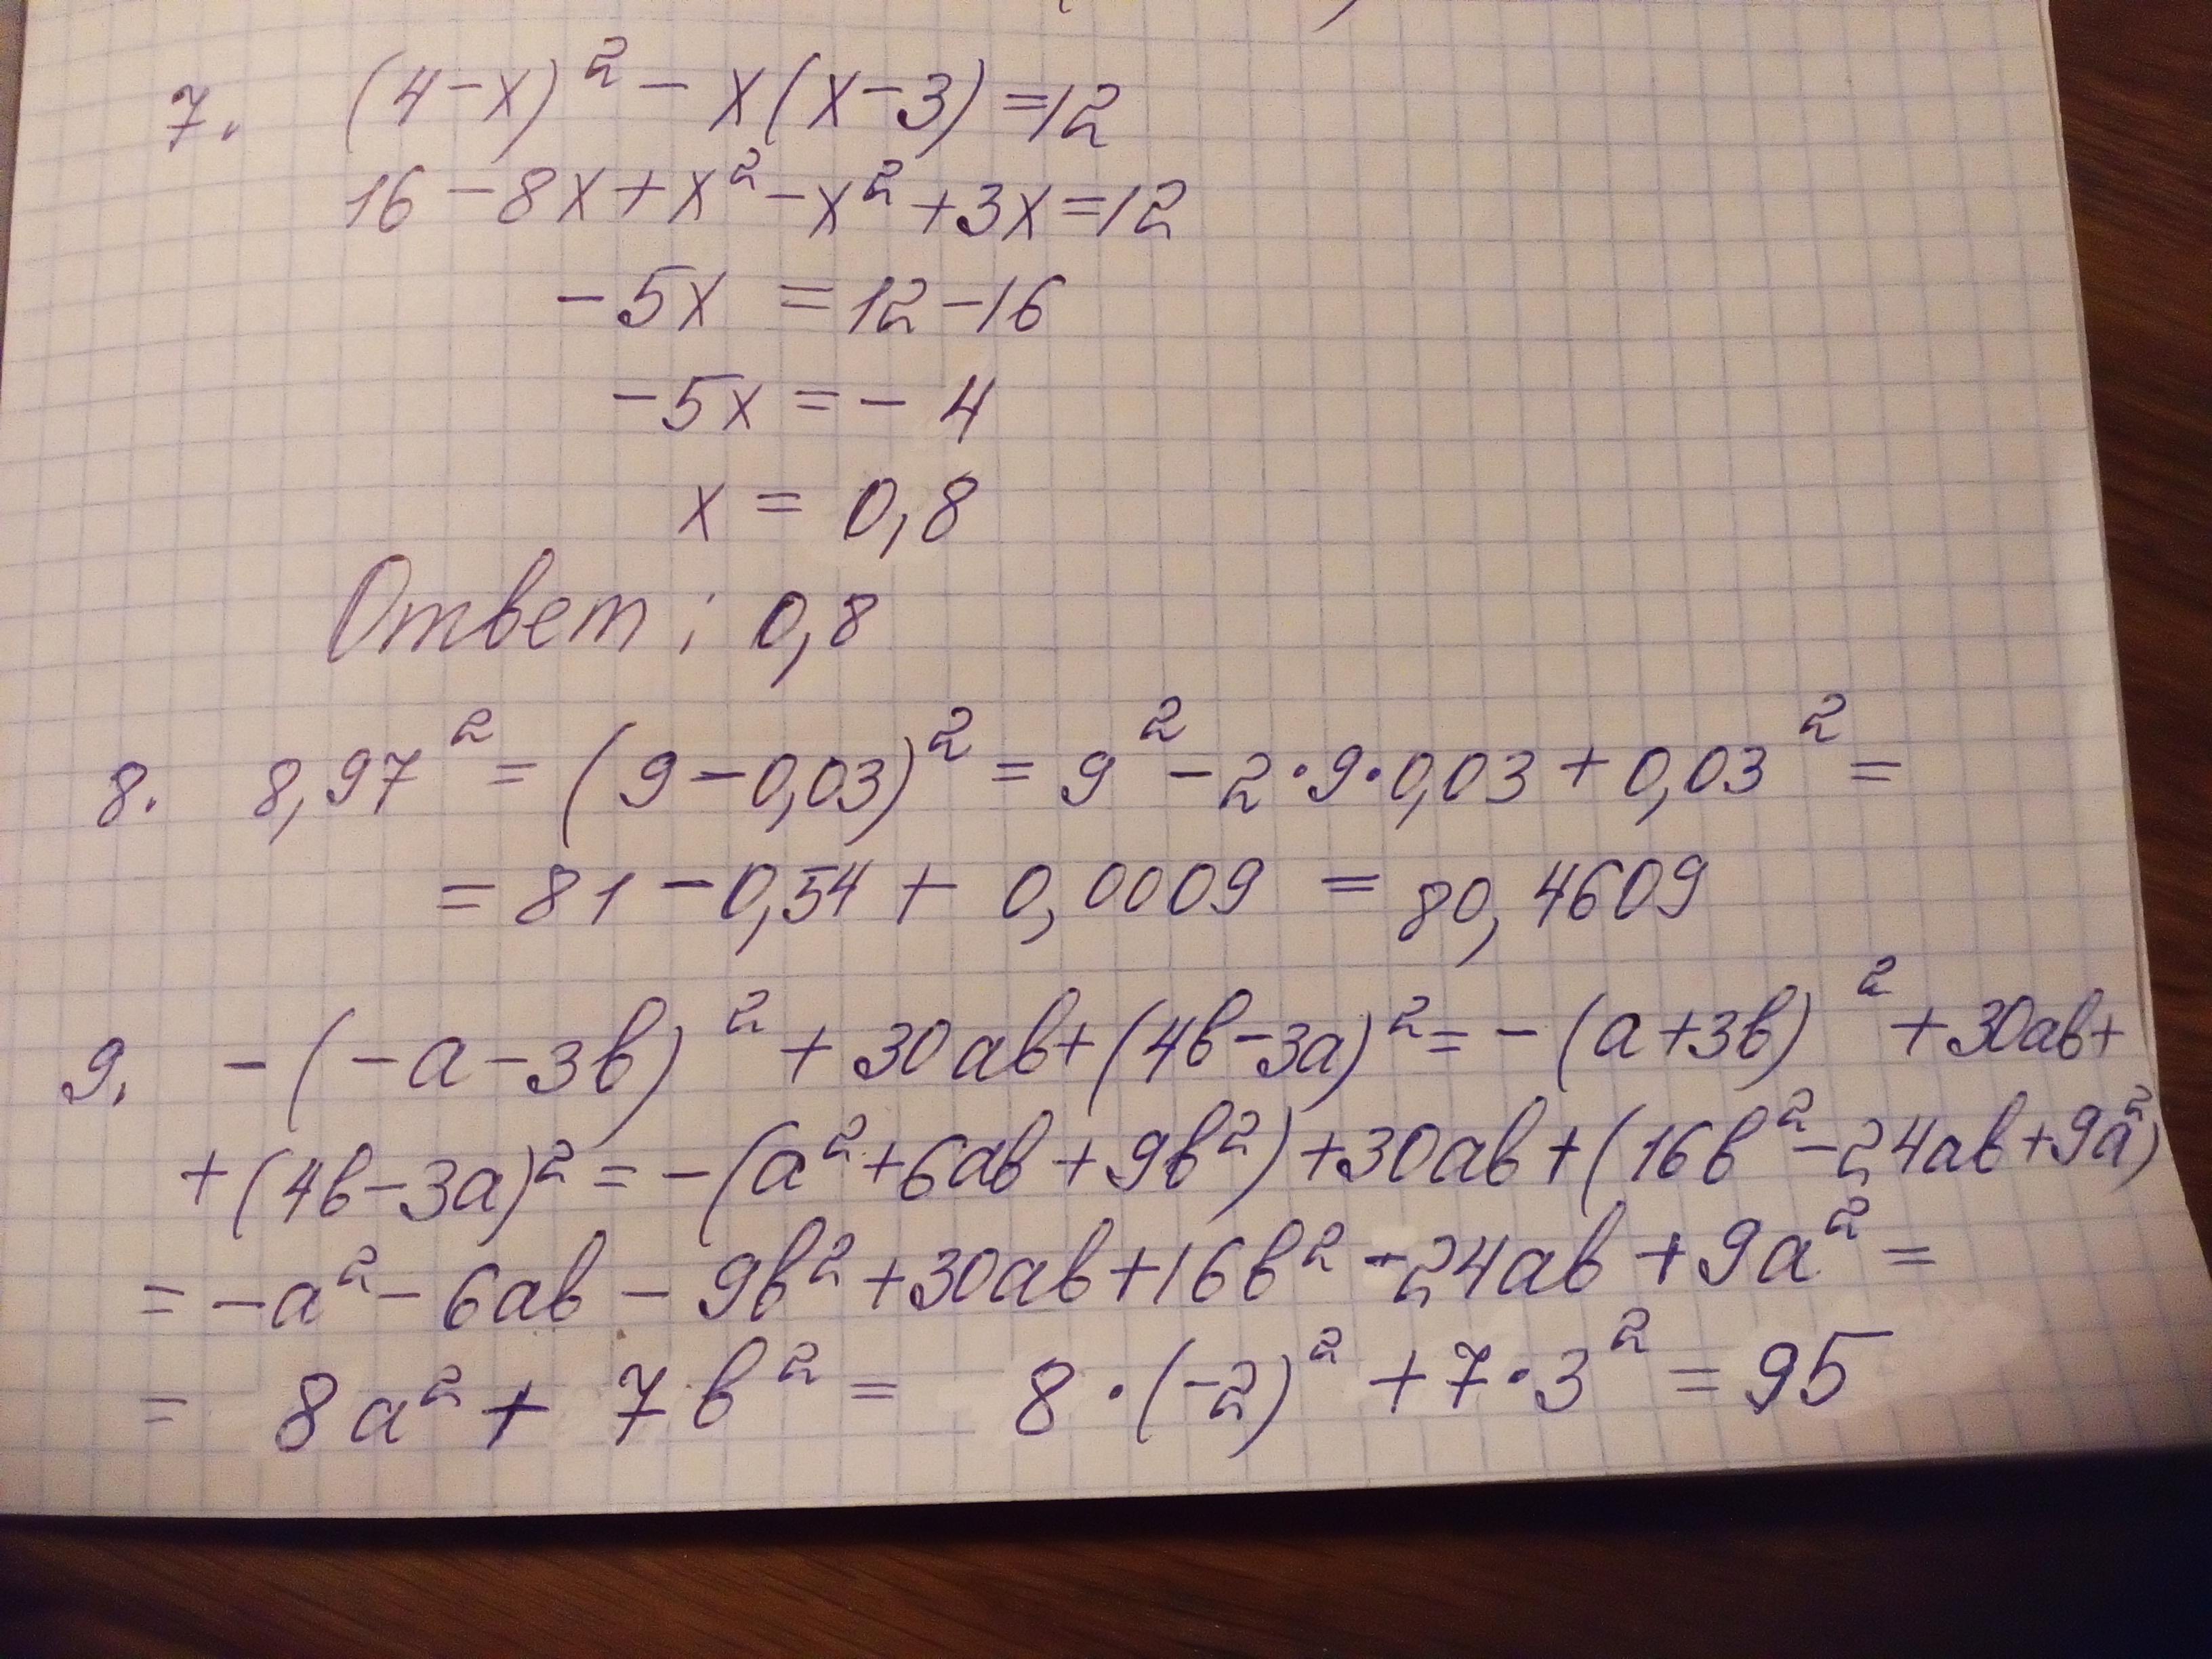 7. (4-x)² - x(x-3) =12
16 -8x+x²-x²+3x=12
-5x =12-16
-5x = - 4
x = 0,8
Ответ: 0,8
8. 8,97² = (9-0,03)² = 9² - 2·9·0,03 + 0,03² =
= 81 - 0,54 + 0,0009 = 80,4609
9. -(-a-3b)² + 30ab+(4b-3a)² = -(a+3b)² +30ab+
+(4b-3a)² = -(a²+6ab+9b²)+30ab+(16b²-24ab+9a²)
= -a²-6ab-9b²+30ab+16b²-24ab+9a² =
= 8a² + 7b² = 8·(-2)² +7·3² = 95